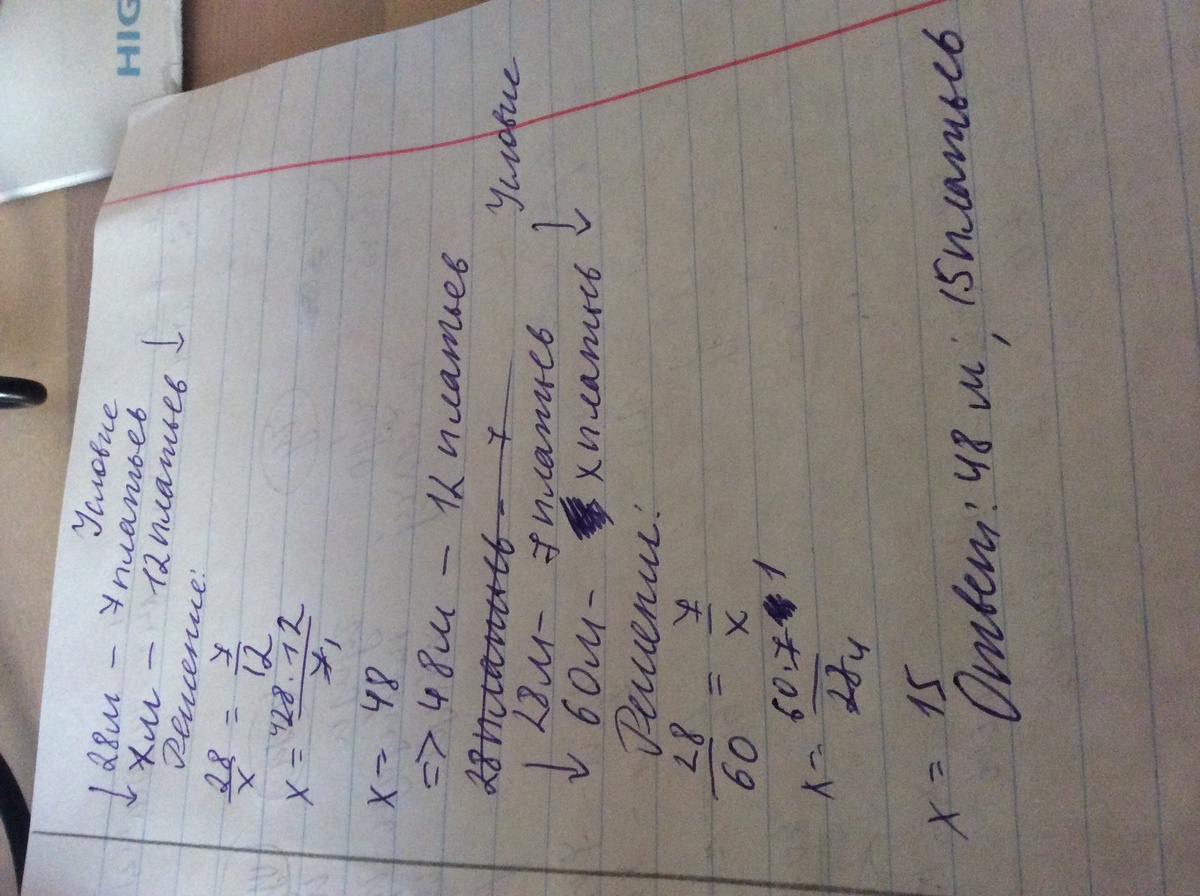 HIG
Условие
↓ 28м - 7 платьев
xм - 12 платьев ↓
Решение:
28/x = 7/12
x = 28·12/7
x = 48
=> 48м - 12 платьев
28 платьев - 7
Условие
↓ 28м - 7 платьев ↓
60м - x платьев
Решение:
28/60 = 7/x
x = 60·7/28
x = 15
Ответ: 48 м; 15 платьев